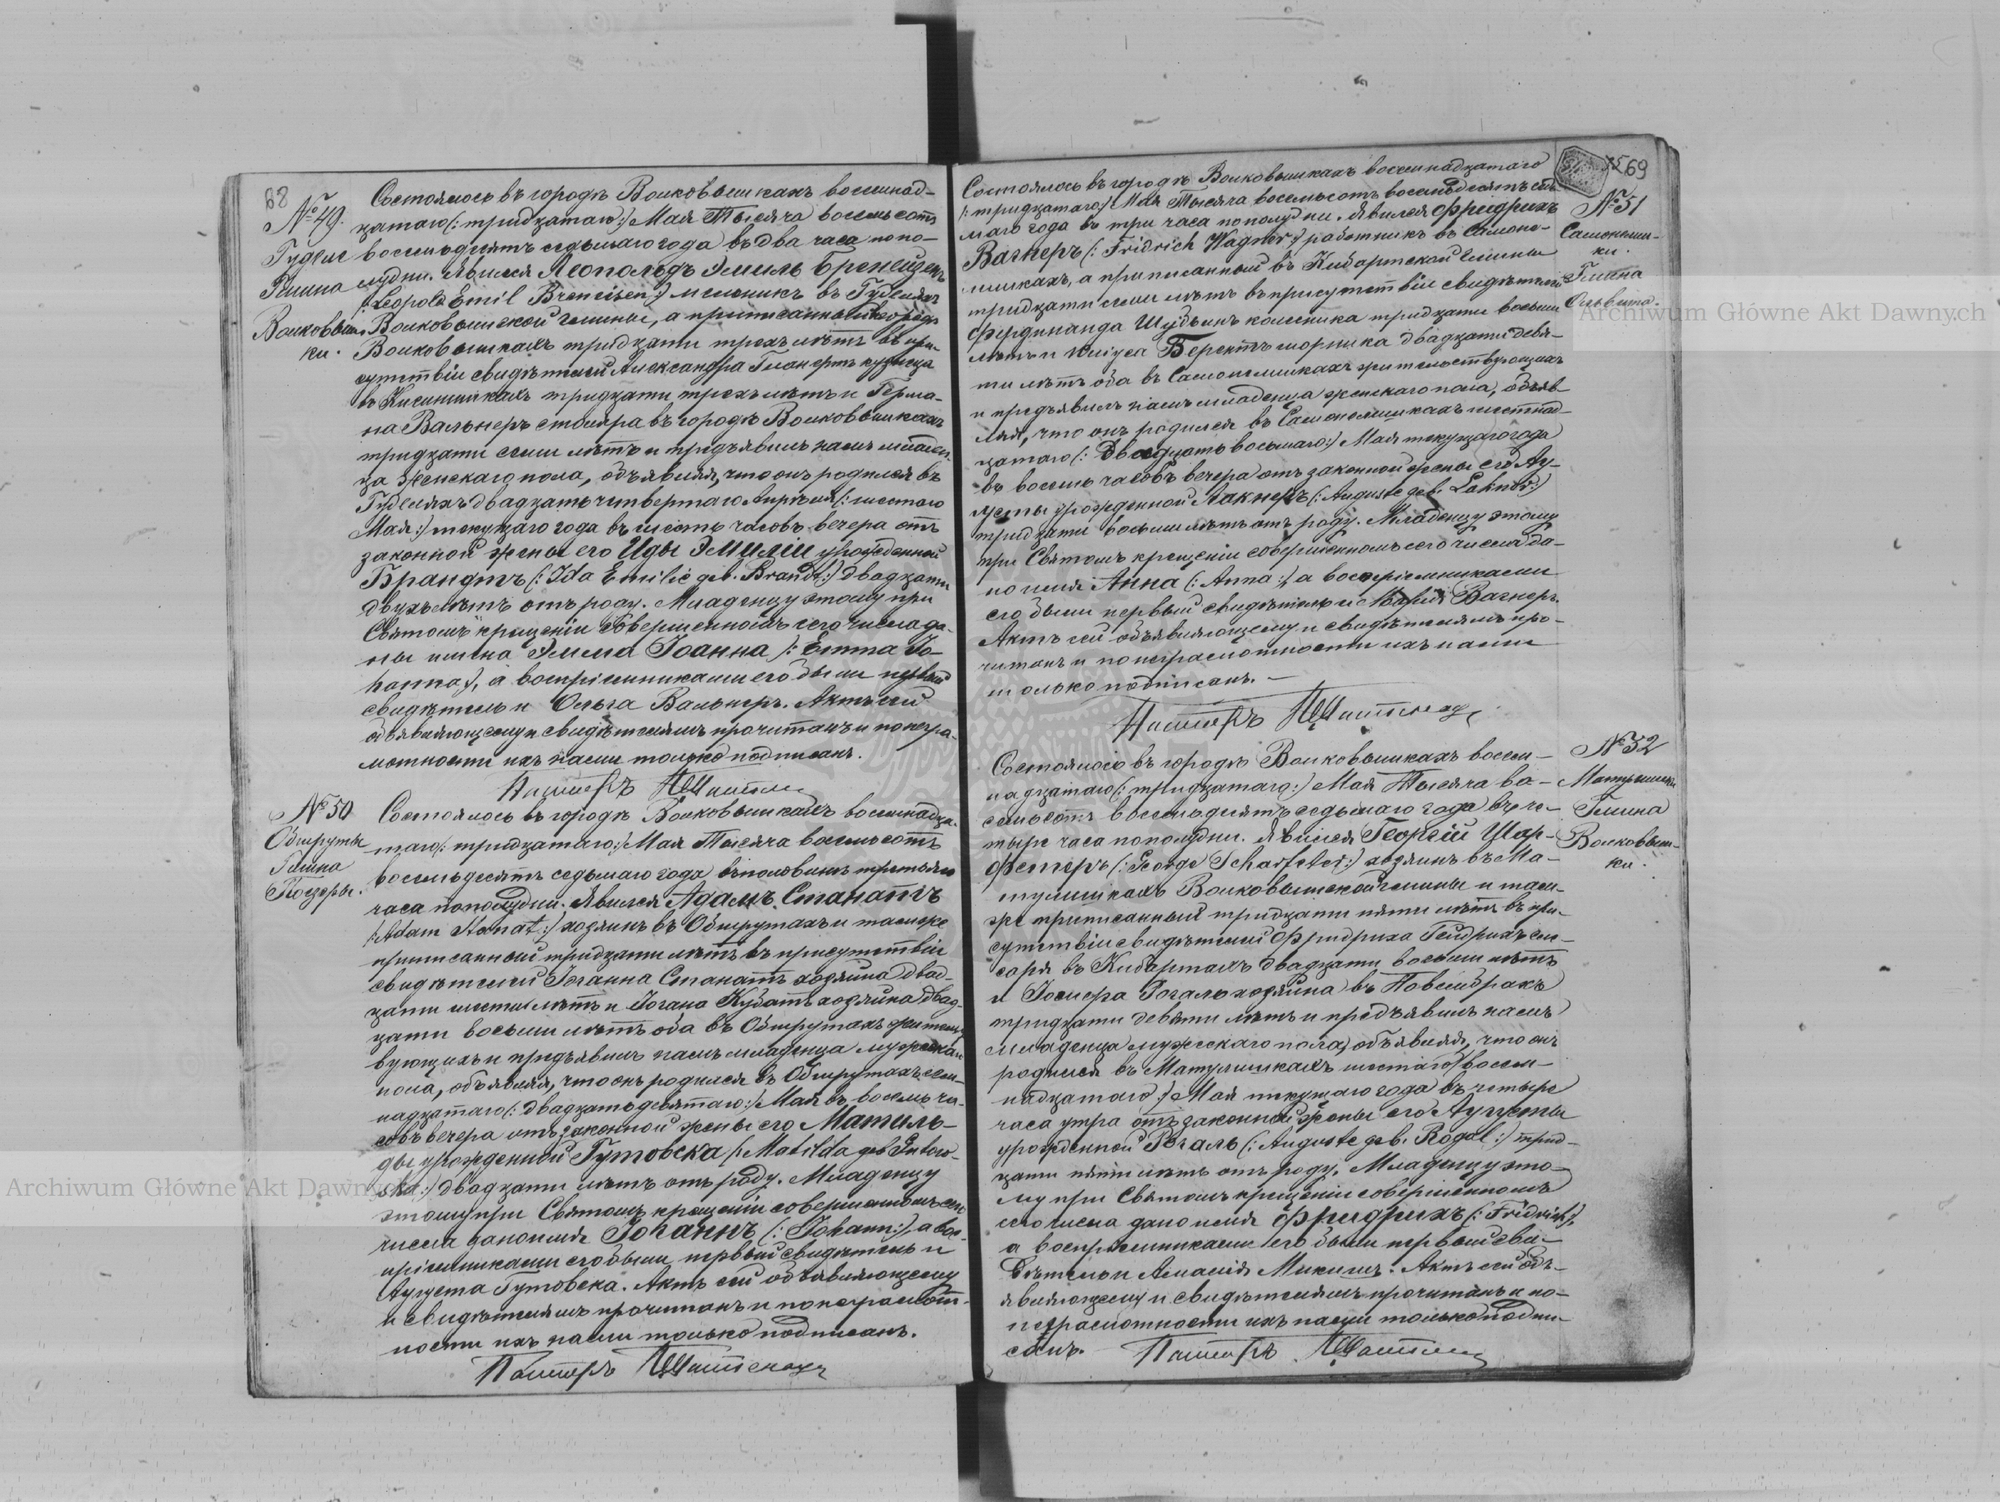 68
№ 49.
Гудели
Гмина
Волковыш-
ки.
Состоялось въ городѣ Волковышкахъ восемнад-
цатаго (: тридцатаго :) Мая Тысяча восемьсотъ
восемьдесятъ седьмаго года въ два часа попо-
лудни. Явился Леопольдъ Эмиль Бренейзенъ
(: Leopold Emil Breneisen :) мельникъ въ Гуделяхъ
Волковышской гмины, а приписанный въ городѣ
Волковышкахъ тридцати трехъ лѣтъ въ при-
сутствіи свидѣтелей Александра кузнеца
въ тридцати трехъ лѣтъ и Герма-
на Вальнеръ столяра въ городѣ Волковышкахъ
тридцати семи лѣтъ и предъявилъ намъ младен-
ца женскаго пола, объявляя, что онъ родился въ
Гуделяхъ двадцать четвертаго Апрѣля (: шестаго
Мая :) текущаго года въ шесть часовъ вечера отъ
законной жены его Иды Эмиліи урожденной
Брандтъ (: Ida Emilie geb. Brandt :) двадцати
двухъ лѣтъ отъ роду. Младенцу этому при
Святомъ крещеніи совершенномъ сего числа да-
ны имена Эмма Іоанна (: Emma Jo-
hanna :), а воспріемниками его были первый
свидѣтель и Ольга Вальнеръ. Актъ сей
объявляющему и свидѣтелямъ прочитанъ и по негра-
мотности ихъ нами только подписанъ.
Пасторъ
№ 50
Обшруты
Гмина
Поезеры.
Состоялось въ городѣ Волковышкахъ восемнадца-
таго (: тридцатаго :) Мая Тысяча восемьсотъ
восемьдесятъ седьмаго года въ половинѣ третьяго
часа пополудни. Явился Адамъ Станатъ
(: Adam Stanat :) хозяинъ въ Обшрутахъ и тамже
приписанный тридцати лѣтъ въ присутствіи
свидѣтелей Іоганна Станатъ хозяина двад-
цати шести лѣтъ и Іогана Кубатъ хозяина двад-
цати восьми лѣтъ оба въ Обшрутахъ жительст-
вующихъ и предъявилъ намъ младенца мужескаго
пола, объявляя, что онъ родился въ Обшрутахъ сем-
надцатаго (: двадцать девятаго :) Мая въ восемь ча-
совъ вечера отъ законной жены его Матиль-
ды урожденной Гутовска (: Matilda geb Gutow-
ska :) двадцати лѣтъ отъ роду. Младенцу
этому при Святомъ крещеніи совершенномъ сего
числа дано имя Іоганнъ (: Johann :), а вос-
пріемниками его были первый свидѣтель и
Августа Гутовска. Актъ сей объявляющему
и свидѣтелямъ прочитанъ и по неграмот-
ности ихъ нами только подписанъ.
Пасторъ
69
№ 51
Гмина
Состоялось въ городѣ Волковышкахъ восемнадцатаго
(: тридцатаго :) Мая Тысяча восемьсотъ восемьдесятъ седь-
маго года въ три часа пополудни. Явился Фридрихъ
Вагнеръ (: Fridrich Wagner :) работникъ въ
а приписанный въ Кибартской гмины
тридцати семи лѣтъ въ присутствіи свидѣтелей
Фердинанда колесника тридцати восьми
лѣтъ и шорника двадцати девя-
ти лѣтъ оба въ жительствующихъ
и предъявилъ намъ младенца женскаго пола, объяв-
ляя, что онъ родился въ шестнад-
цатаго (: двадцать восьмаго :) Мая текущаго года
въ восемь часовъ вечера отъ законной жены его Ав-
густы урожденной Лакнеръ (: Auguste geb. Lakner :)
тридцати восьми лѣтъ отъ роду. Младенцу этому
при Святомъ крещеніи совершенномъ сего числа да-
но имя Анна (: Anna :), а воспріемниками
его были первый свидѣтель и Марія Вагнеръ.
Актъ сей объявляющему и свидѣтелямъ про-
читанъ и по неграмотности ихъ нами
только подписанъ. —
Пасторъ
№ 52
Гмина
Волковыш-
ки.
Состоялось въ городѣ Волковышкахъ восем-
надцатаго (: тридцатаго :) Мая Тысяча во-
семьсотъ восемьдесятъ седьмаго года въ че-
тыре часа пополудни. Явился Георгій Шар-
фетеръ (: George Scharfeter :) хозяинъ въ Ма-
тулишкахъ Волковышской гмины и там-
же приписанный тридцати пяти лѣтъ въ при-
сутствіи свидѣтелей Фридриха Гейдрихъ сле-
саря въ Кибартахъ двадцати восьми лѣтъ
и Рогаль хозяина въ
тридцати девяти лѣтъ и предъявилъ намъ
младенца мужескаго пола, объявляя, что онъ
родился въ Матулишкахъ шестаго (: восем-
надцатаго :) Мая текущаго года въ четыре
часа утра отъ законной жены его Августы
урожденной Рогаль (: Auguste geb. Rogal :) трид-
цати пяти лѣтъ отъ роду. Младенцу это-
му при Святомъ крещеніи совершенномъ
сего числа дано имя Фридрихъ (: Fridrich :),
а воспріемниками его были первый сви-
дѣтель и Амалія Микшъ. Актъ сей объ-
являющему и свидѣтелямъ прочитанъ и по-
неграмотности ихъ нами только подпи-
санъ.
Пасторъ
Archiwum Główne Akt Dawnych
Archiwum Główne Akt Dawnych